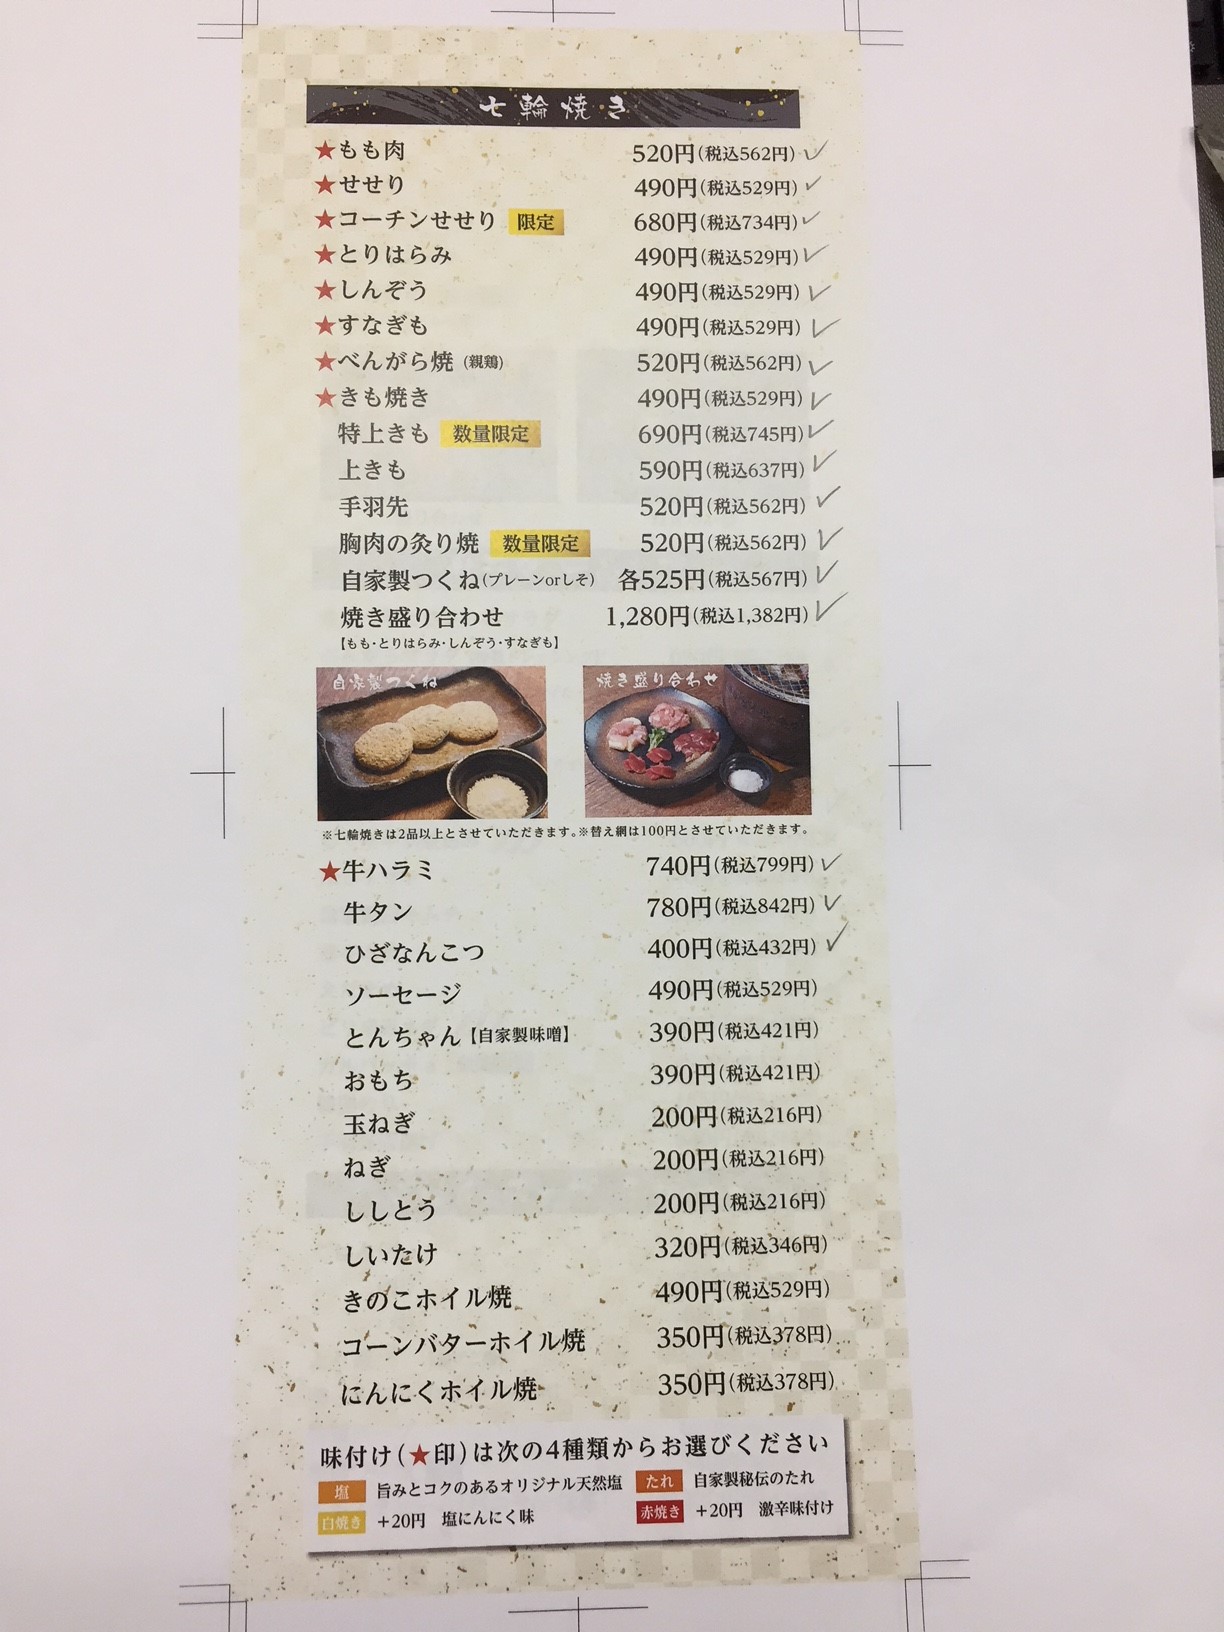 七輪焼き
★もも肉 520円(税込562円)
★せせり 490円(税込529円)
★コーチンせせり 限定 680円(税込734円)
★とりはらみ 490円(税込529円)
★しんぞう 490円(税込529円)
★すなぎも 490円(税込529円)
★べんがら焼(親鶏) 520円(税込562円)
★きも焼き 490円(税込529円)
特上きも 数量限定 690円(税込745円)
上きも 590円(税込637円)
手羽先 520円(税込562円)
胸肉の灸り焼 数量限定 520円(税込562円)
自家製つくね(プレーンorしそ) 各525円(税込567円)
焼き盛り合わせ 1,280円(税込1,382円)
【もも・とりはらみ・しんぞう・すなぎも】
自家製つくね 焼き盛り合わせ
※七輪焼きは2品以上とさせていただきます。※替え網は100円とさせていただきます。
★牛ハラミ 740円(税込799円)
牛タン 780円(税込842円)
ひざなんこつ 400円(税込432円)
ソーセージ 490円(税込529円)
とんちゃん【自家製味噌】 390円(税込421円)
おもち 390円(税込421円)
玉ねぎ 200円(税込216円)
ねぎ 200円(税込216円)
ししとう 200円(税込216円)
しいたけ 320円(税込346円)
きのこホイル焼 490円(税込529円)
コーンバターホイル焼 350円(税込378円)
にんにくホイル焼 350円(税込378円)
味付け(★印)は次の4種類からお選びください
塩 旨みとコクのあるオリジナル天然塩 たれ 自家製秘伝のたれ
白焼き +20円 塩にんにく味 赤焼き +20円 激辛味付け